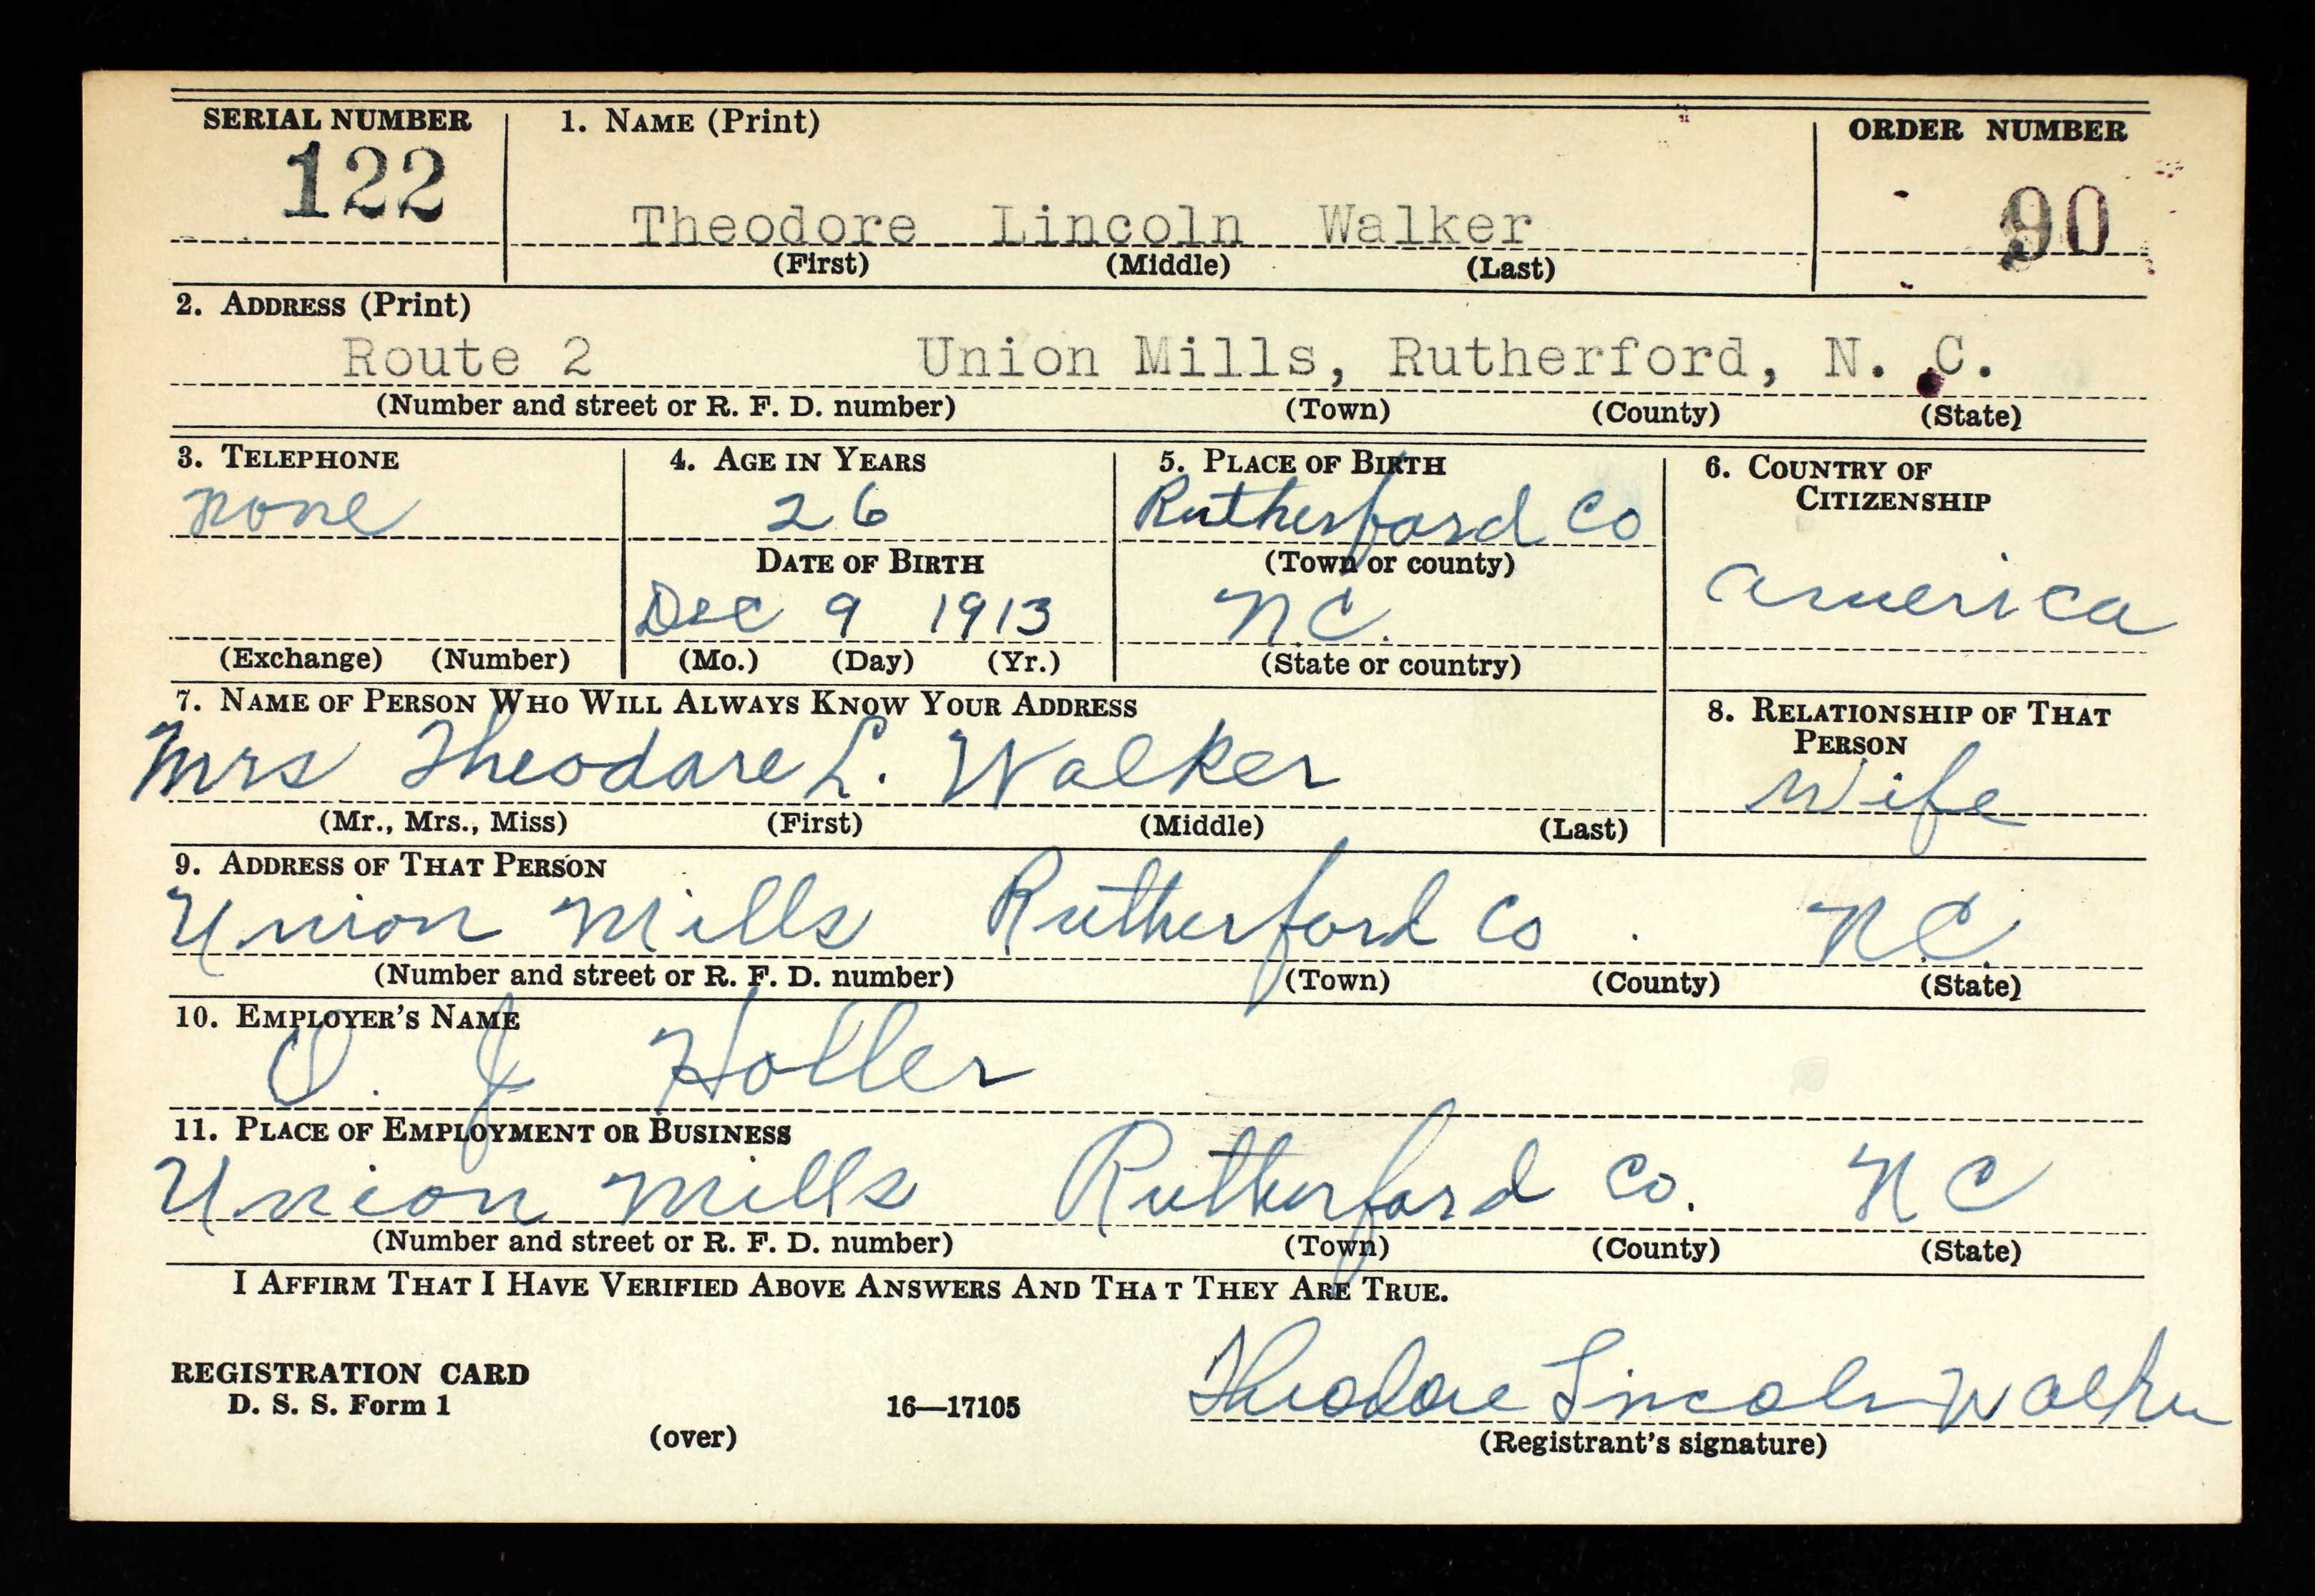 SERIAL NUMBER 1. NAME (Print) ORDER NUMBER
122 Theodore Lincoln Walker 90
(First) (Middle) (Last)
2. ADDRESS (Print)
Route 2 Union Mills, Rutherford, N. C.
(Number and street or R. F. D. number) (Town) (County) (State)
3. TELEPHONE 4. AGE IN YEARS 5. PLACE OF BIRTH 6. COUNTRY OF
CITIZENSHIP
none 26 Rutherford Co
DATE OF BIRTH (Town or county)
Dec 9 1913 N.C. america
(Exchange) (Number) (Mo.) (Day) (Yr.) (State or country)
7. NAME OF PERSON WHO WILL ALWAYS KNOW YOUR ADDRESS 8. RELATIONSHIP OF THAT
PERSON
Mrs Theodore L. Walker Wife
(Mr., Mrs., Miss) (First) (Middle) (Last)
9. ADDRESS OF THAT PERSON
Union Mills Rutherford Co N.C.
(Number and street or R. F. D. number) (Town) (County) (State)
10. EMPLOYER'S NAME
O. J Holler
11. PLACE OF EMPLOYMENT OR BUSINESS
Union Mills Rutherford Co. N C
(Number and street or R. F. D. number) (Town) (County) (State)
I AFFIRM THAT I HAVE VERIFIED ABOVE ANSWERS AND THAT THEY ARE TRUE.
REGISTRATION CARD Theodore Lincoln Walker
D. S. S. Form 1 16—17105
(over) (Registrant's signature)